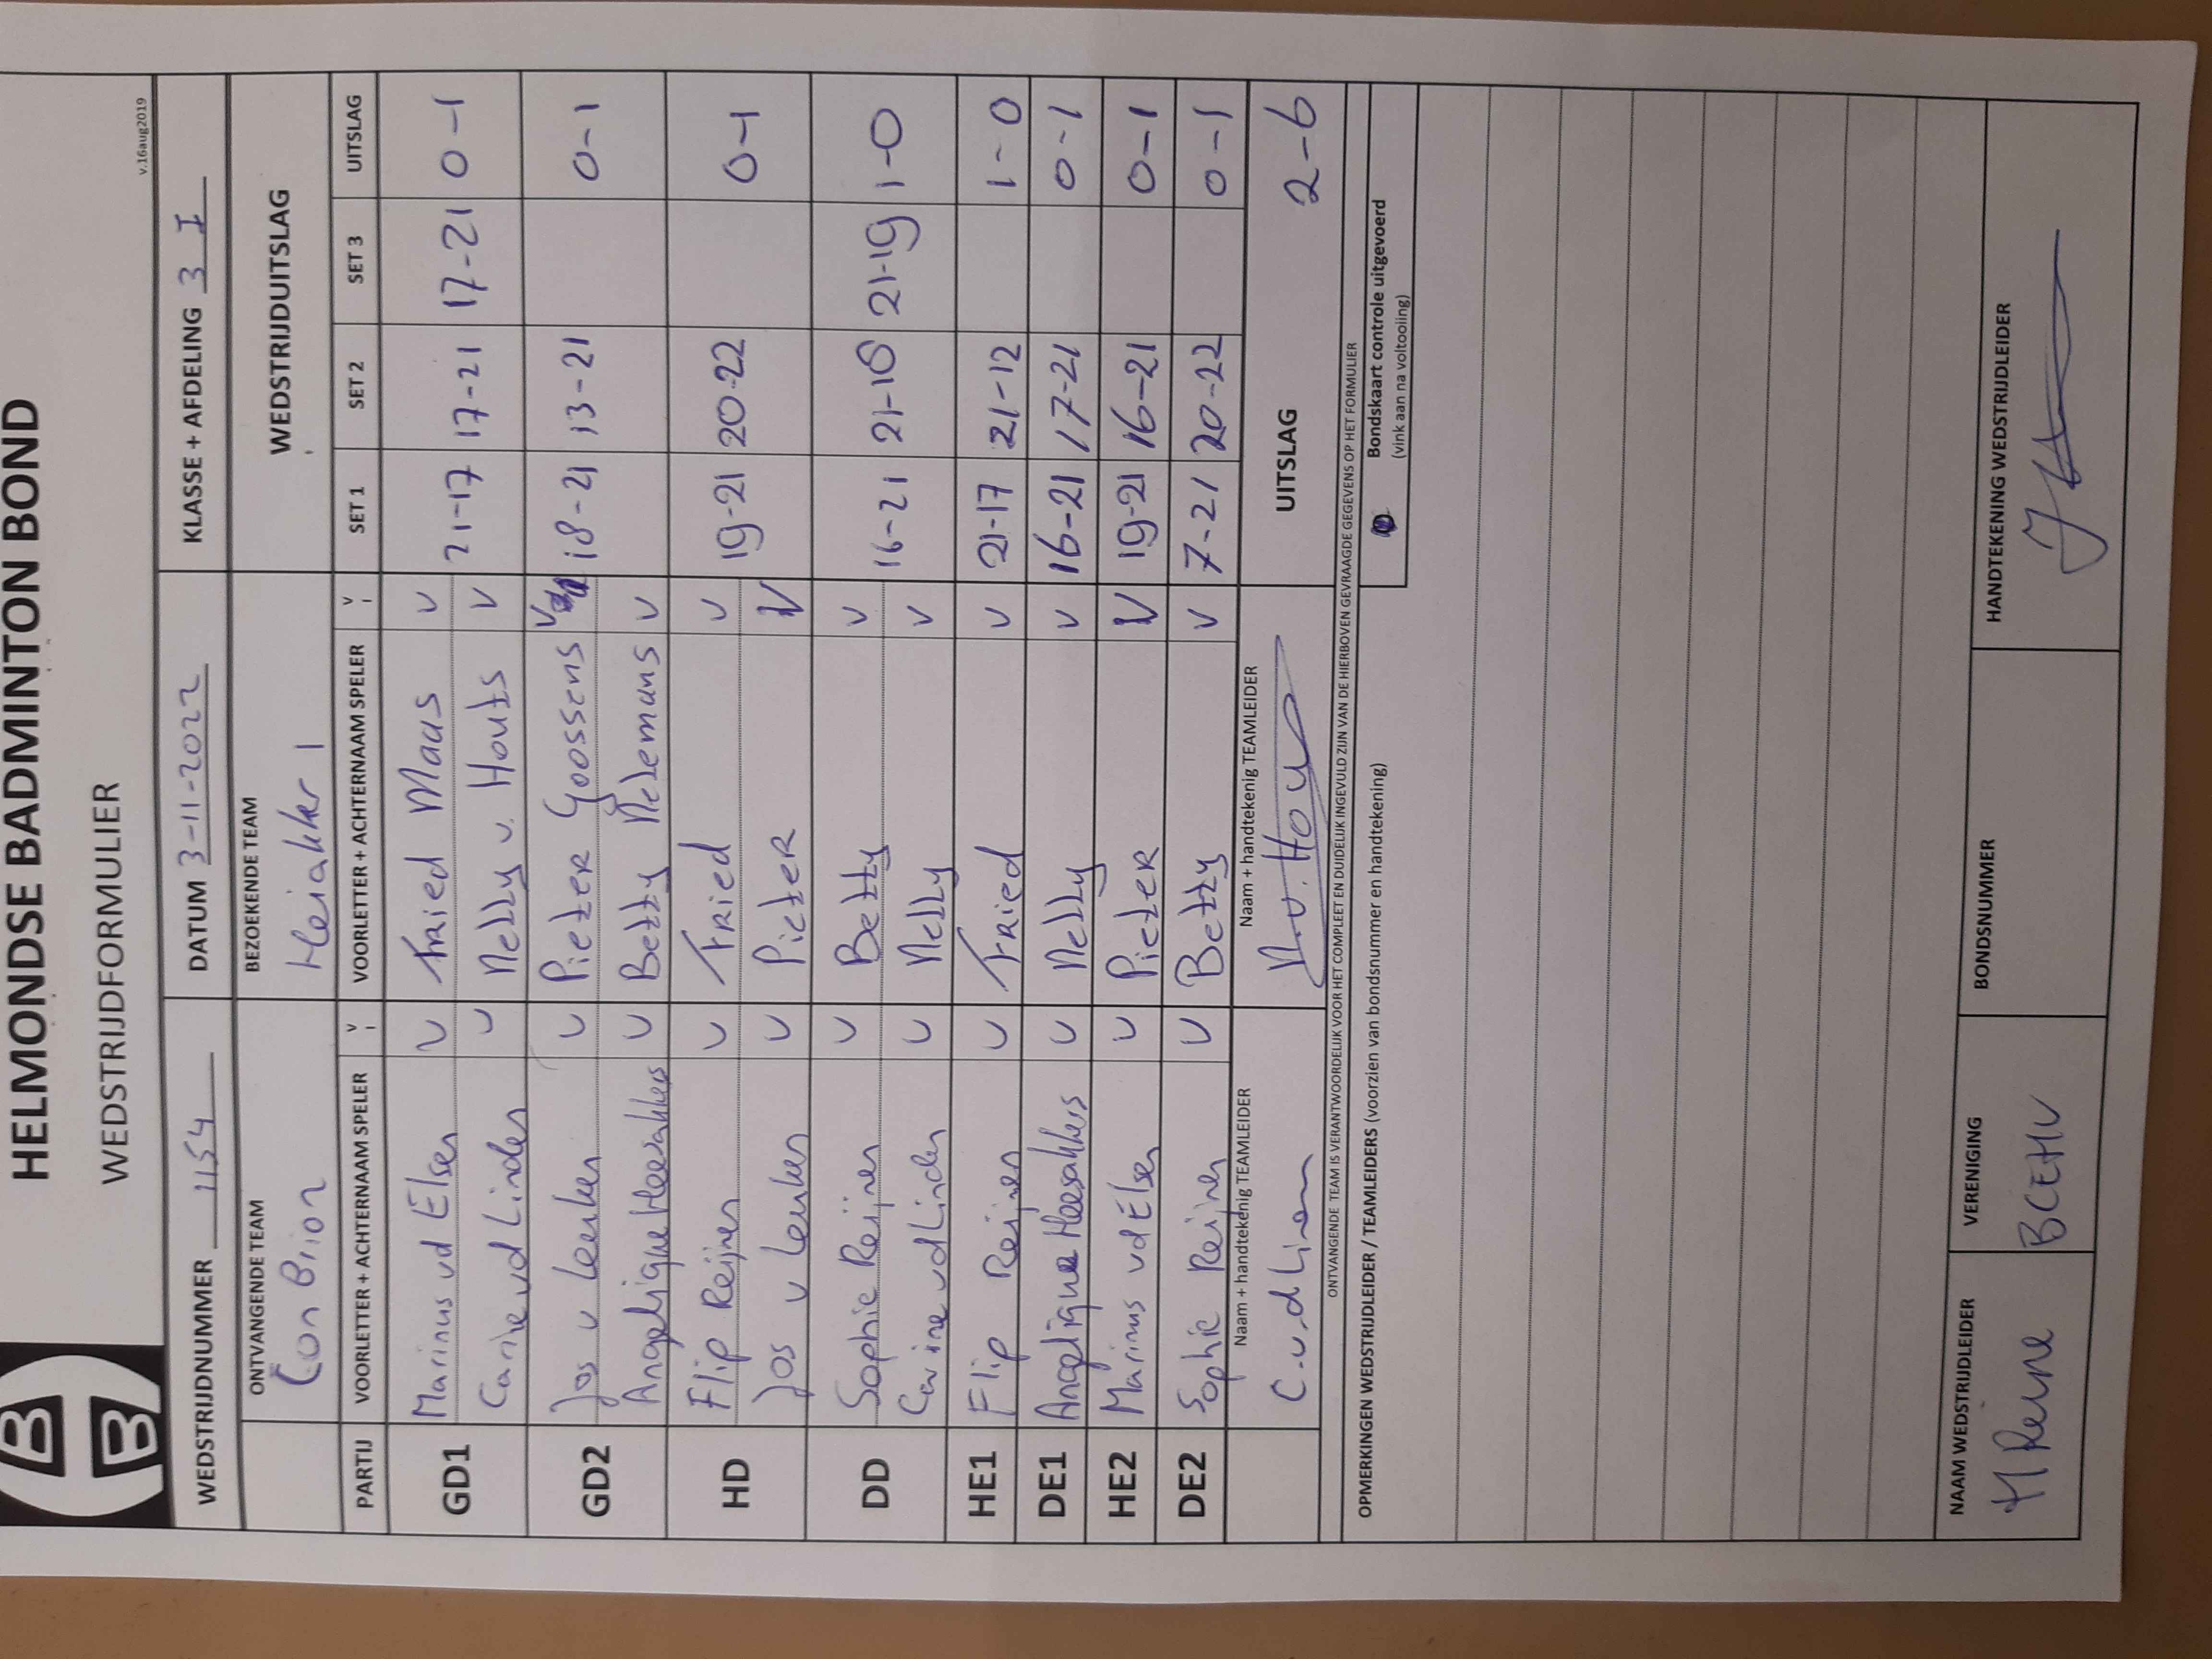 HELMONDSE BADMINTON BOND
WEDSTRIJDFORMULIER
v.16aug2019
WEDSTRIJDNUMMER 1154 DATUM 3-11-2022 KLASSE + AFDELING 3 I
ONTVANGENDE TEAM BEZOEKENDE TEAM WEDSTRIJDUITSLAG
Con Brion Heiakker 1
PARTIJ VOORLETTER + ACHTERNAAM SPELER V VOORLETTER + ACHTERNAAM SPELER V SET 1 SET 2 SET 3 UITSLAG
GD1 Marinus vd Elsen V Fried Maas V 21-17 17-21 17-21 0-1
Carine vd Linden V Nelly v. Houts V
GD2 Jos v Leuken V Pieter Goossens V 18-21 13-21 0-1
Angelique Heesakkers V Betty Melemans V
HD Flip Reijnen V Fried V 19-21 20-22 0-1
Jos v Leuken V Pieter V
DD Sophie Reijnen V Betty V 16-21 21-18 21-19 1-0
Carine vd Linden V Nelly V
HE1 Flip Reijnen V Fried V 21-17 21-12 1-0
DE1 Angelique Heesakkers V Nelly V 16-21 17-21 0-1
HE2 Marinus vd Elsen V Pieter V 19-21 16-21 0-1
DE2 Sophie Reijnen V Betty V 7-21 20-22 0-1
Naam + handtekenig TEAMLEIDER Naam + handtekenig TEAMLEIDER UITSLAG 2-6
C.v.d Linden N.v. Hou
ONTVANGENDE TEAM IS VERANTWOORDELIJK VOOR HET COMPLEET EN DUIDELIJK INGEVULD ZIJN VAN DE HIERBOVEN GEVRAAGDE GEGEVENS OP HET FORMULIER
OPMERKINGEN WEDSTRIJDLEIDER / TEAMLEIDERS (voorzien van bondsnummer en handtekening)
Bondskaart controle uitgevoerd
(vink aan na voltooiing)
NAAM WEDSTRIJDLEIDER VERENIGING BONDSNUMMER HANDTEKENING WEDSTRIJDLEIDER
BCEHV